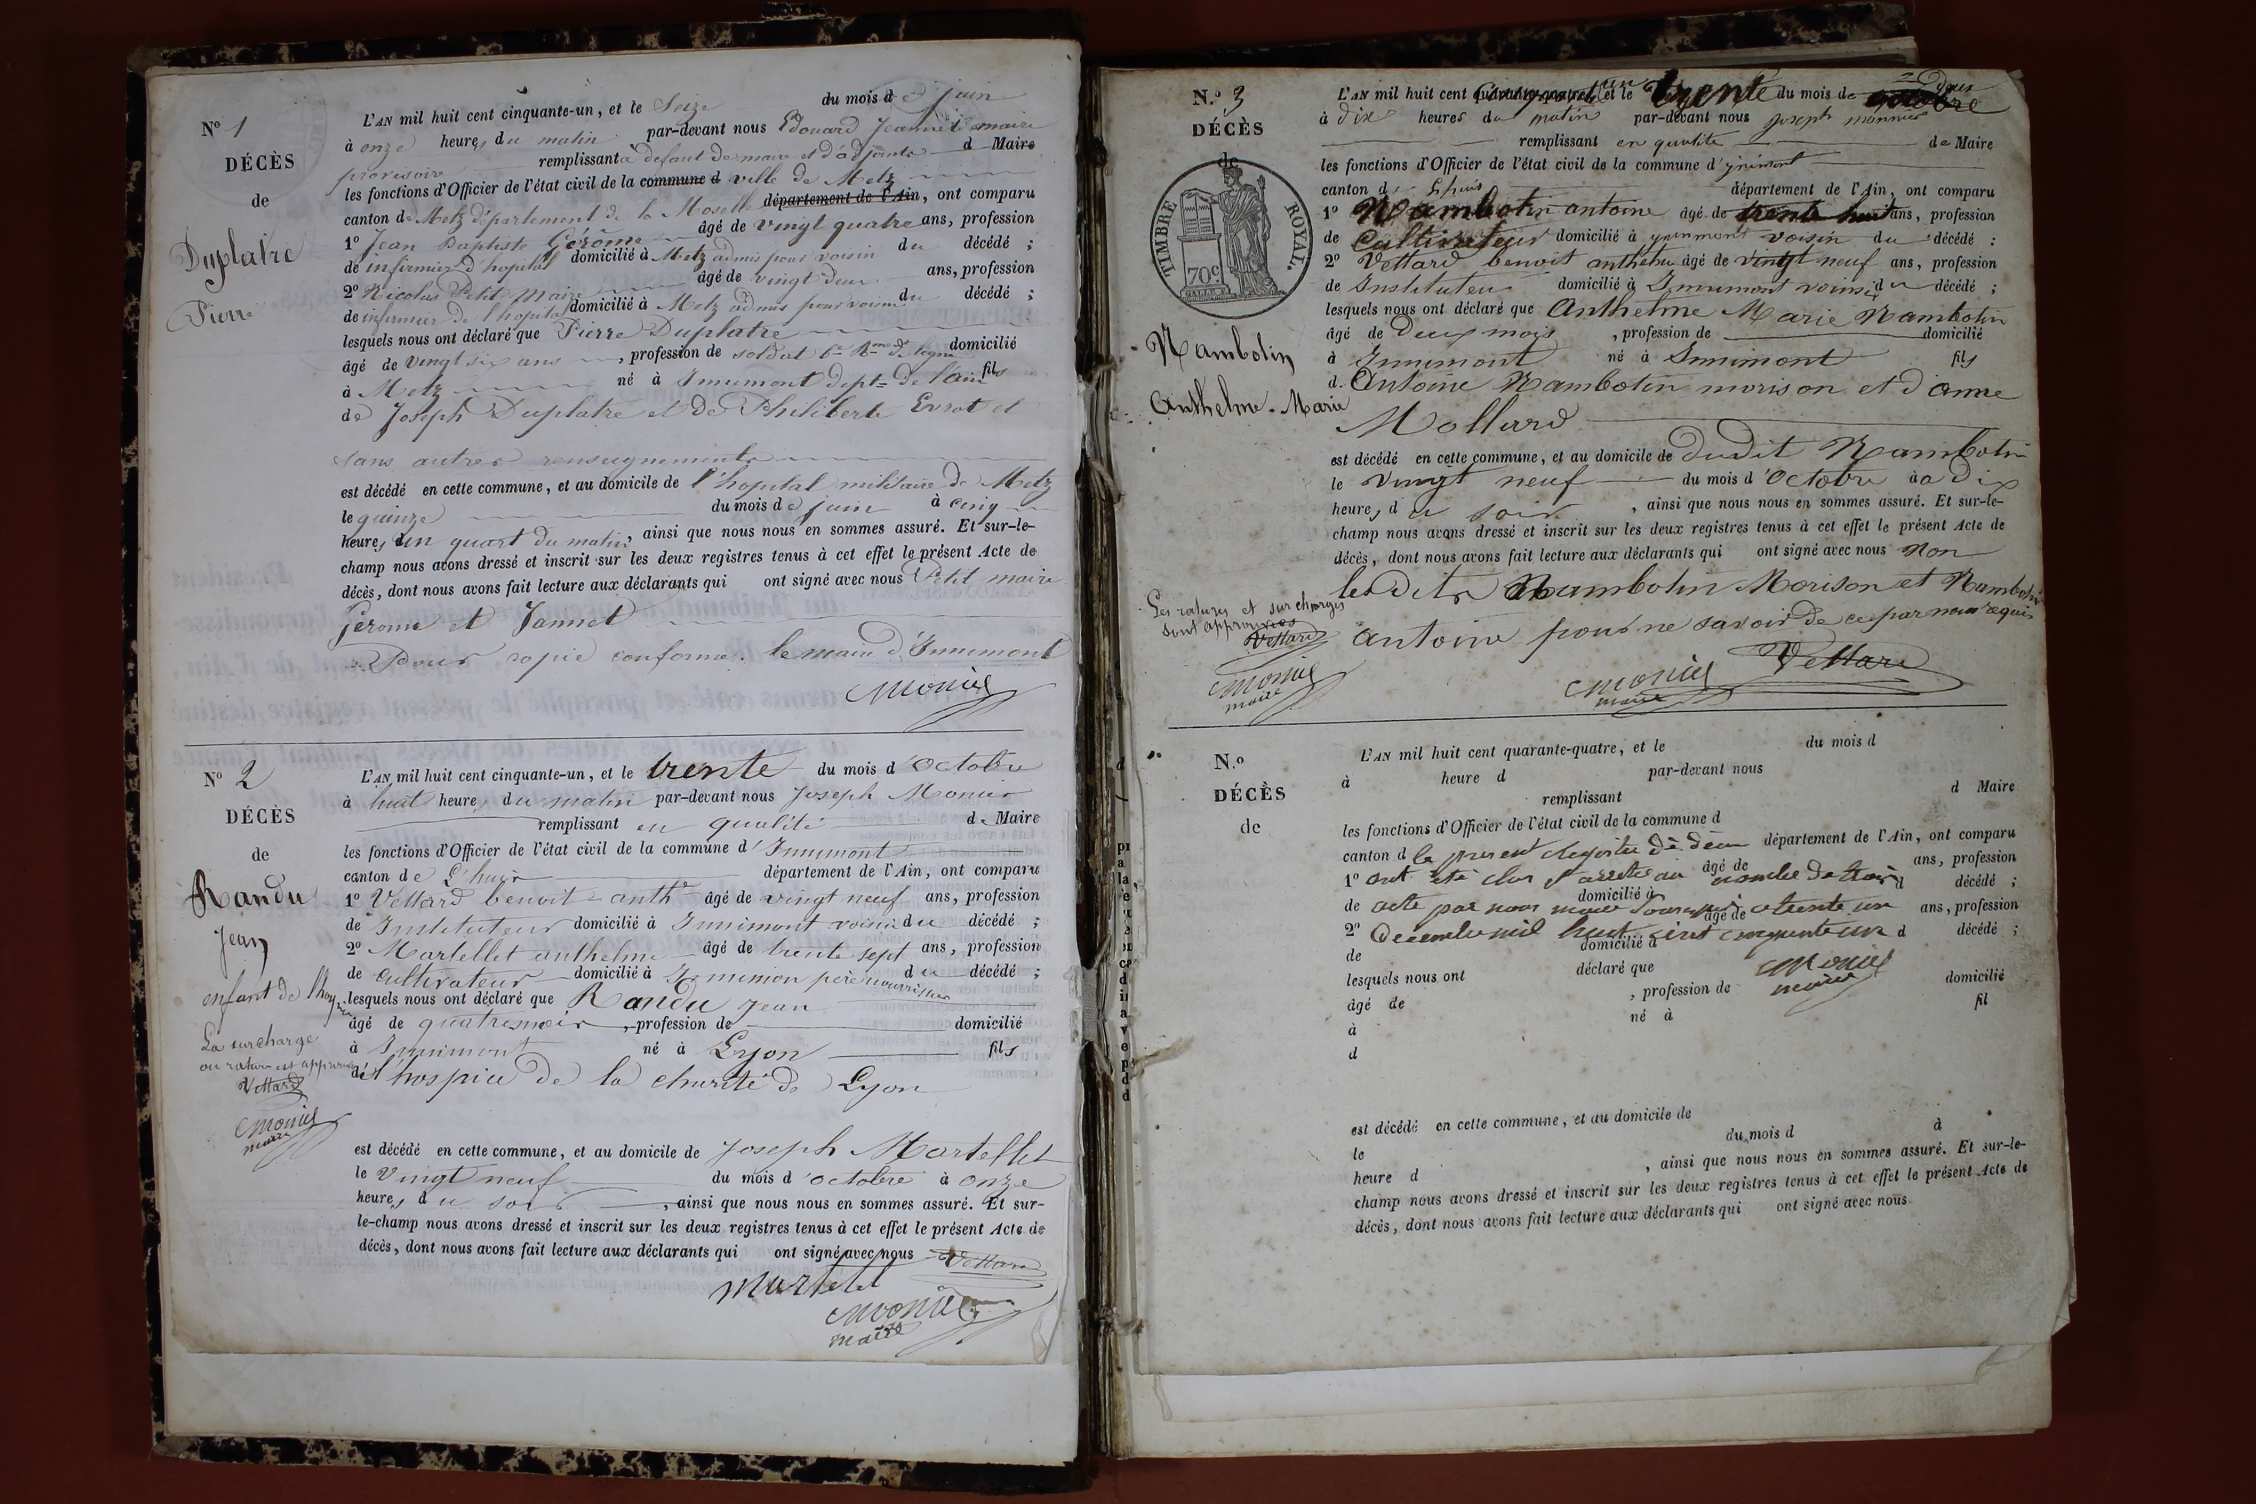 N° 1
DÉCÈS
de
Duplatre
Pierre
L'AN mil huit cent cinquante-un, et le Seize du mois de juin
à onze heures du matin par-devant nous Edouard Jeannet maire
provisoire remplissant à defaut de maire et d'adjoints d Maire
les fonctions d'Officier de l'état civil de la commune d ville de Metz
canton de Metz département de la Moselle département de l'Ain, ont comparu
1° Jean Baptiste Gérôme âgé de vingt quatre ans, profession
de infirmier d'hopital domicilié à Metz admis pour voisin du décédé ;
2° Nicolas Petit maire âgé de vingt deux ans, profession
de infirmier de l'hopital domicilié à Metz admis pour voisin du décédé ;
lesquels nous ont déclaré que Pierre Duplatre
âgé de vingt six ans, profession de soldat domicilié
à Metz né à Innimont dept de l'ain fils
de Joseph Duplatre et de Philiberte Evrot et
sans autres renseignements
est décédé en cette commune, et au domicile de l'hopital militaire de Metz
le quinze du mois de juin à cinq
heures un quart du matin, ainsi que nous nous en sommes assuré. Et sur-le-
champ nous avons dressé et inscrit sur les deux registres tenus à cet effet le présent Acte de
décès, dont nous avons fait lecture aux déclarants qui ont signé avec nous Petit maire
Gérome et Jannet
Pour copie conforme. le maire d'Innimont
Monier
N° 2
DÉCÈS
de
Randu
Jean
enfant de l'hospice
La surcharge
ou rature est approuvée
Vettard
Monier
maire
L'AN mil huit cent cinquante-un, et le trente du mois d'Octobre
à huit heures du matin par-devant nous Joseph Monier
remplissant en qualité de Maire
les fonctions d'Officier de l'état civil de la commune d'Innimont
canton de L'huis département de l'Ain, ont comparu
1° Vettard benoit anth° âgé de vingt neuf ans, profession
de Instituteur domicilié à Innimont voisin du décédé ;
2° Martellet anthelme âgé de trente sept ans, profession
de cultivateur domicilié à Innimon père nourricier du décédé ;
lesquels nous ont déclaré que Randu Jean
âgé de quatre mois, profession de domicilié
à Innimont né à Lyon fils
de l'hospice de la charité de Lyon
est décédé en cette commune, et au domicile de Joseph Martellet
le vingt neuf du mois d'octobre à onze
heures du soir, ainsi que nous nous en sommes assuré. Et sur-
le-champ nous avons dressé et inscrit sur les deux registres tenus à cet effet le présent Acte de
décès, dont nous avons fait lecture aux déclarants qui ont signé avec nous Vettard
Martelet
Monier
maire
N.° 3
DÉCÈS
de
TIMBRE ROYAL.
70c.
Nambotin
Anthelme-Marie
Les ratures et surcharges
sont approuvées
Vettard
Monier
maire
L'AN mil huit cent quarante-quatre, cinquante un et le trente du mois de octobre
à dix heures du matin par-devant nous Joseph monnier
remplissant en qualité de Maire
les fonctions d'Officier de l'état civil de la commune d'ynimont
canton de Lhuis département de l'Ain, ont comparu
1° Nambotin antoine âgé de trente huit ans, profession
de Cultivateur domicilié à ynimont voisin du décédé :
2° Vettard benoit anthelm âgé de vingt neuf ans, profession
de Instituteur domicilié à Innimont voisin du décédé ;
lesquels nous ont déclaré que Anthelme Marie Nambotin
âgé de Deux mois, profession de domicilié
à Innimont né à Innimont fils
d. Antoine Nambotin morison et d'anne
Mollard
est décédé en cette commune, et au domicile de dudit Nambotin
le vingt neuf du mois d'Octobre à dix
heures du soir, ainsi que nous nous en sommes assuré. Et sur-le-
champ nous avons dressé et inscrit sur les deux registres tenus à cet effet le présent Acte de
décès, dont nous avons fait lecture aux déclarants qui ont signé avec nous Non
les dits Nambotin Morison et Nambotin
antoine pour ne savoir de ce par nous requis
Monier Vettard
maire
N.°
DÉCÈS
de
L'AN mil huit cent quarante-quatre, et le du mois d
à heure d par-devant nous
remplissant d Maire
les fonctions d'Officier de l'état civil de la commune d
canton d le présent Registre de décès département de l'Ain, ont comparu
1° ont été clos et arrêtés au âgé de nombre de trois ans, profession
d décédé ;
de acte par nous maire domicilié à soussigné ce trente un
âgé de ans, profession
2° décembre mil huit cent cinquante un d décédé ;
de domicilié à
lesquels nous ont déclaré que Monier
maire
âgé de, profession de domicilié
à né à fil
d
est décédé en cette commune, et au domicile de
le du mois d à
heure d, ainsi que nous nous en sommes assuré. Et sur-le-
champ nous avons dressé et inscrit sur les deux registres tenus à cet effet le présent Acte de
décès, dont nous avons fait lecture aux déclarants qui ont signé avec nous